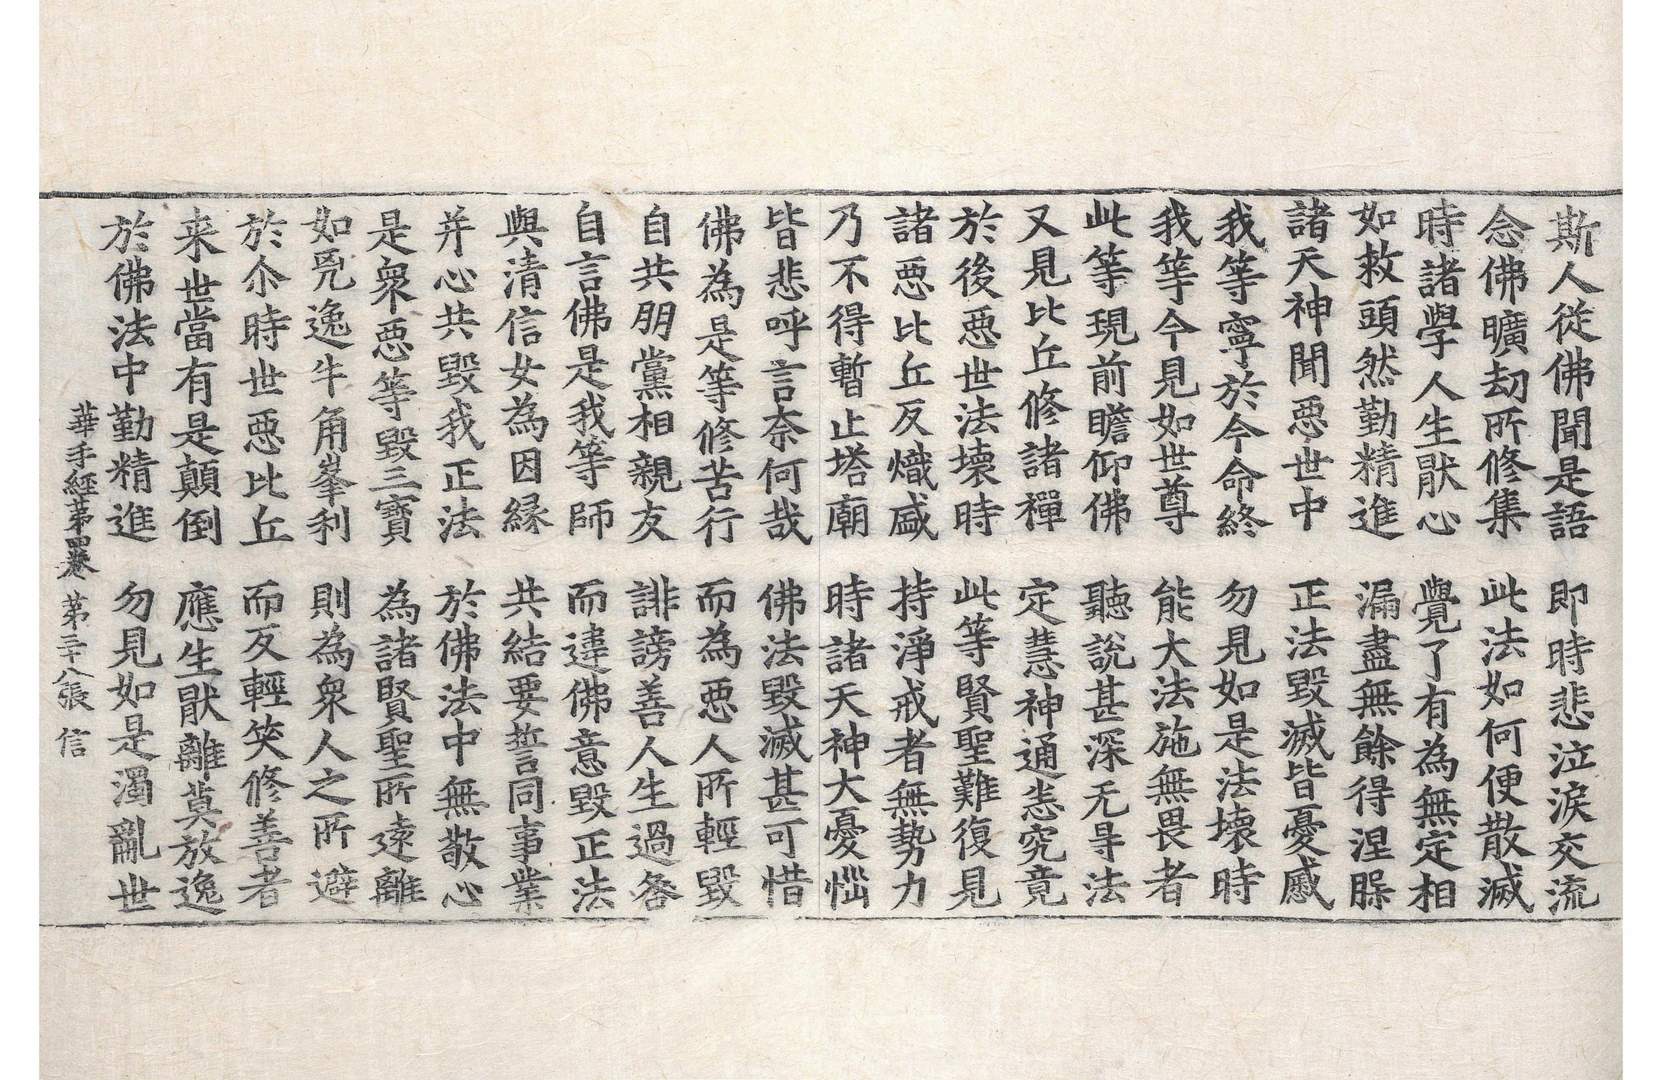 斯人從佛聞是語　即時悲泣淚交流
念佛曠劫所修集　此法如何便散滅
時諸學人生猒心　覺了有為無定相
如救頭然勤精進　漏盡無餘得涅槃
諸天神聞惡世中　正法毀滅皆憂慼
我等寧於今命終　勿見如是法壞時
我等今見如世尊　能大法施無畏者
此等現前瞻仰佛　聽說甚深无㝵法
又見比丘修諸禪　定慧神通悉究竟
於後惡世法壞時　此等賢聖難復見
諸惡比丘反熾盛　持淨戒者無勢力
乃不得暫止塔廟　時諸天神大憂惱
皆悲呼言奈何哉　佛法毀滅甚可惜
佛為是等修苦行　而為惡人所輕毀
自共朋黨相親友　誹謗善人生過咎
自言佛是我等師　而違佛意毀正法
與清信女為因緣　共結要誓同事業
并心共毀我正法　於佛法中無敬心
是衆惡等毀三寶　為諸賢聖所遠離
如兕逸牛角峯利　則為衆人之所避
於尒時世惡比丘　而反輕笑修善者
来世當有是顛倒　應生猒離莫放逸
於佛法中勤精進　勿見如是濁亂世
華手經第四卷　第三十八張　信